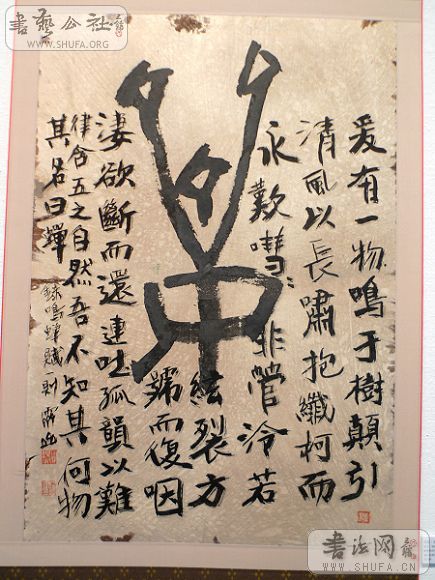 書藝公社
WWW.SHUFA.ORG
爰有一物鳴于樹顛引
清風以長嘯抱纖柯而
永歎嘒〻非管泠若
絃裂方
號而復咽
淒欲斷而還連吐孤韻以難
律含五之自然吾不知其何物
其名曰蟬
錄鳴蟬賦一則
書法网
WWW.SHUFA.CN